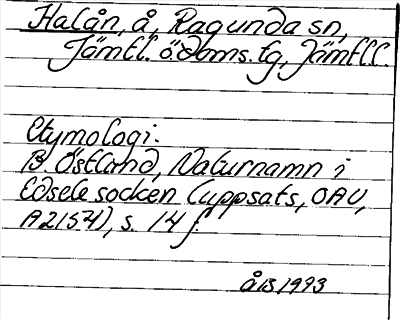 Halån, å, Ragunda sn,
Jämtl. ö. doms. tg, Jämtl. l.
Etymologi:
B. Östlund, Naturnamn i
Edsele socken (uppsats, OAU,
A2154), s. 14 f.
ÅB 1993